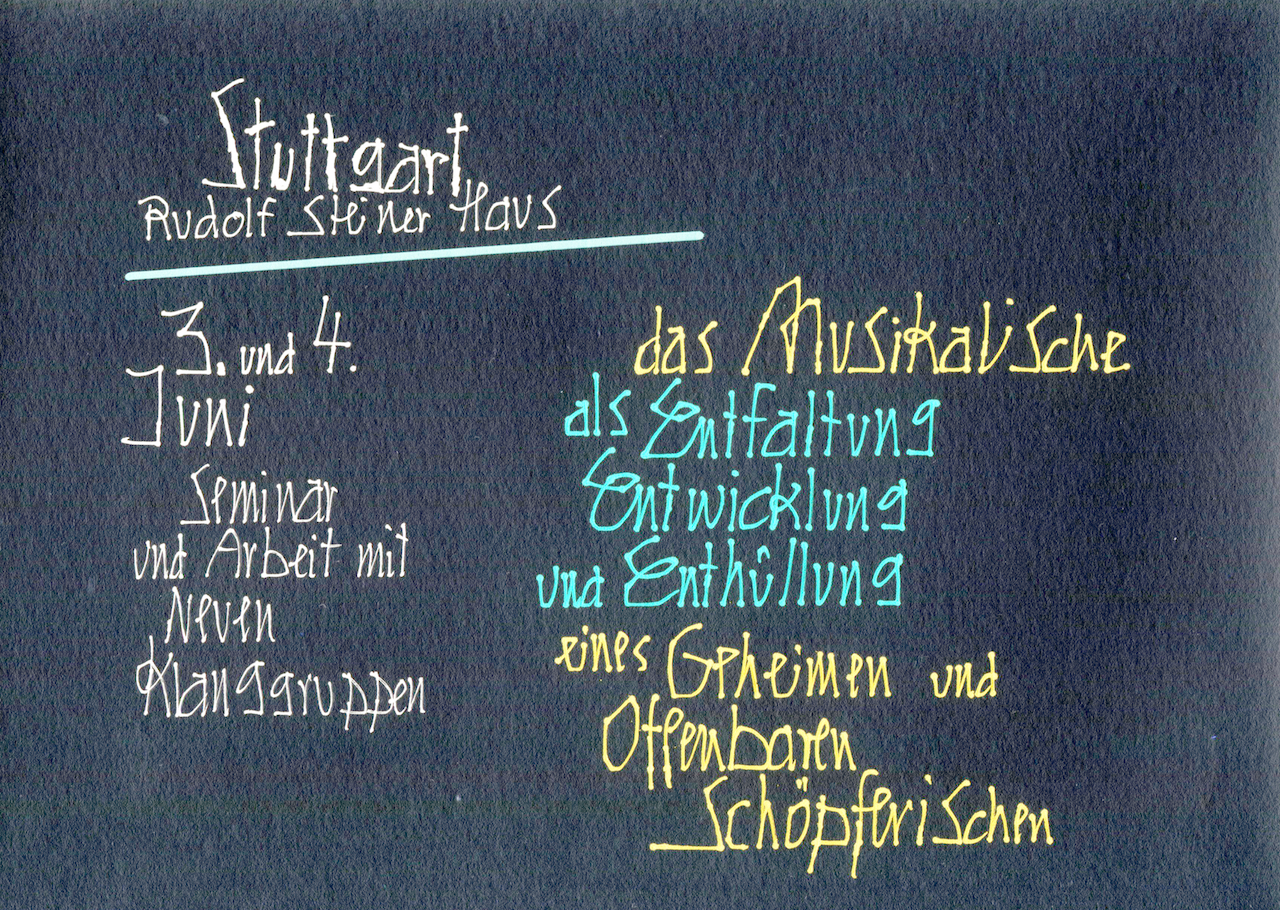 Stuttgart
Rudolf Steiner Haus
3. und 4.
Juni
Seminar
und Arbeit mit
Neuen
Klanggruppen
das Musikalische
als Entfaltung
Entwicklung
und Enthüllung
eines Geheimen und
Offenbaren
Schöpferischen